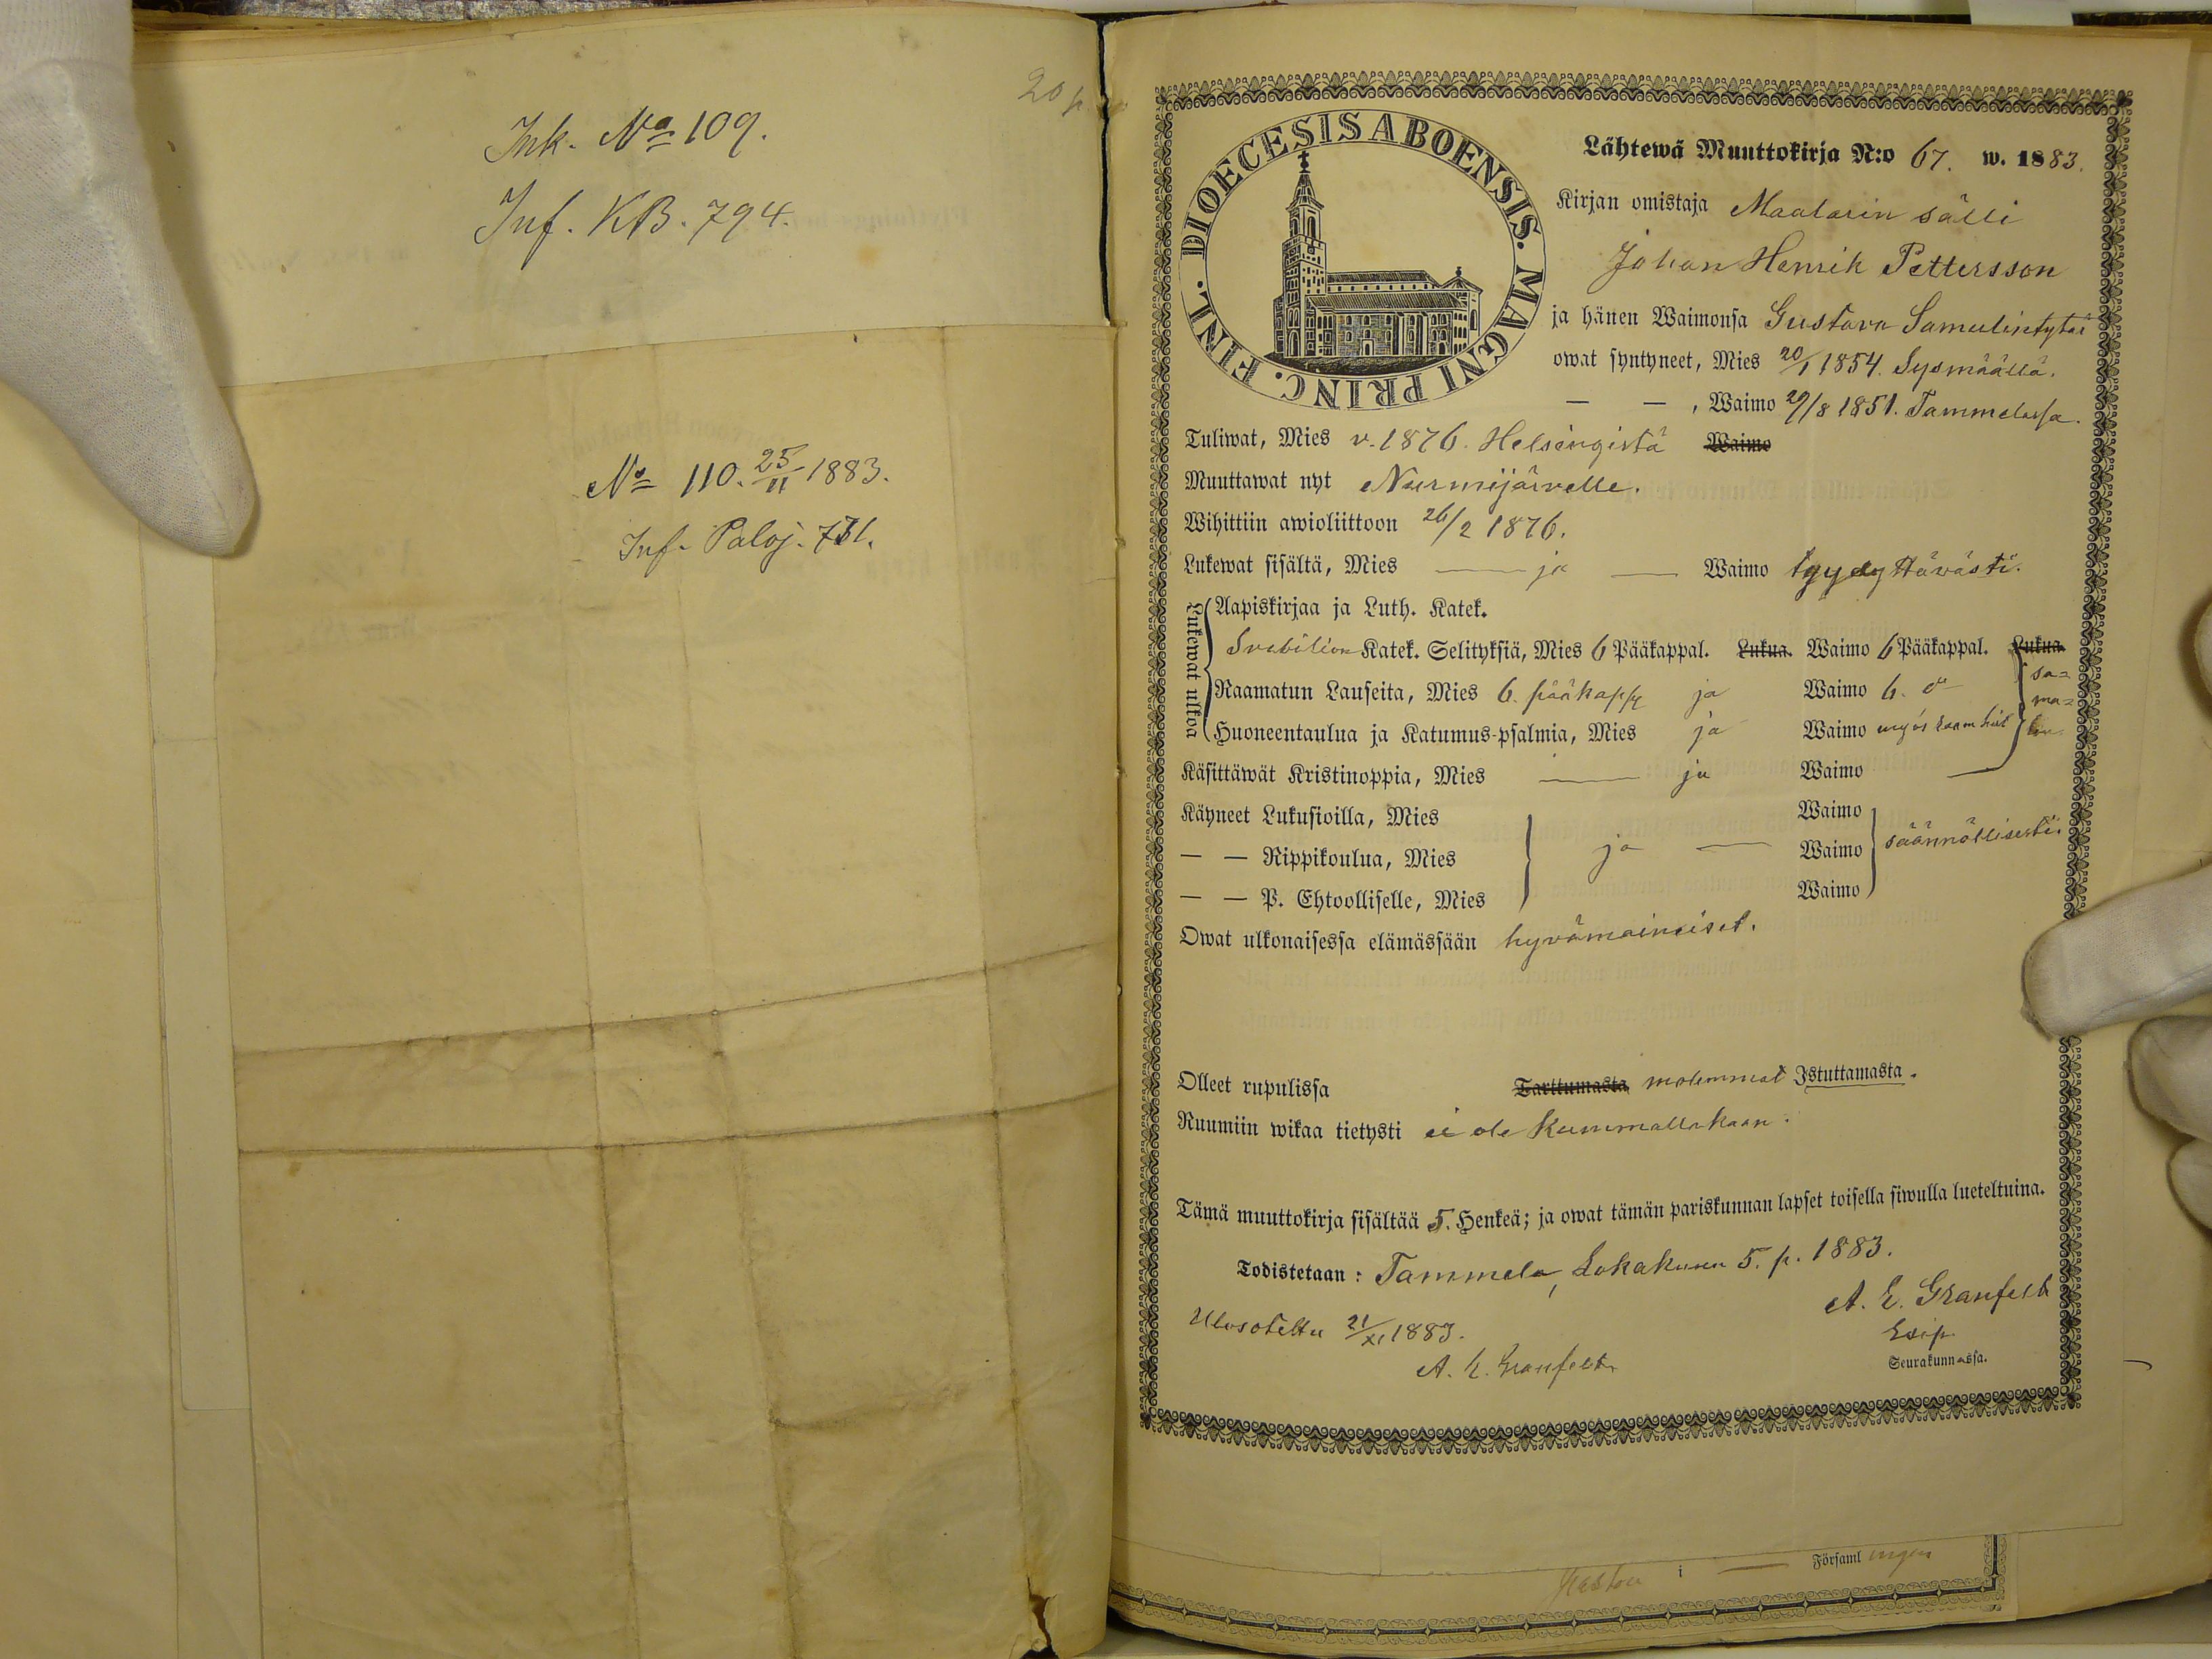 20 p.
Ink. No 109.
Inf. KB. 794.
No 110. 25/11 1883.
Inf. Paloj. 731.
DIOECESIS ABOENSIS. MAGNI PRINC. FINL.
Lähtewä Muuttokirja N:o 67. w. 1883.
Kirjan omistaja Maalarin sälli
Johan Henrik Pettersson
ja hänen Waimonsa Gustava Samulintytär
owat syntyneet, Mies 20/1 1854. Sysmäällä.
— — , Waimo 29/8 1851. Tammelassa.
Tuliwat, Mies v. 1876. Helsingistä Waimo
Muuttawat nyt Nurmijärvelle.
Wihittiin awioliittoon 26/2 1876.
Lukewat sisältä, Mies — ja — Waimo tyydyttävästi.
Lukewat ulkoa
Aapiskirjaa ja Luth. Katek.
Svebilion Katek. Selityksiä, Mies 6 Pääkappal. Lukua. Waimo 6 Pääkappal. Lukua.
Raamatun Lauseita, Mies 6. pääkapp. ja Waimo 6. do
Huoneentaulua ja Katumus-psalmia, Mies ja Waimo myös
Käsittäwät Kristinoppia, Mies — ja Waimo —
sa=
ma=
Käyneet Lukusioilla, Mies Waimo
— — Rippikoulua, Mies ja — Waimo säännöllisesti.
— — P. Ehtoolliselle, Mies Waimo
Owat ulkonaisessa elämässään hyvämaineiset.
Olleet rupulissa Tarttumasta molemmat Istuttamasta.
Ruumiin wikaa tietysti ei ole kummallakaan.
Tämä muuttokirja sisältää 5. Henkeä; ja owat tämän pariskunnan lapset toisella siwulla lueteltuina.
Todistetaan: Tammela, Lokakuun 5. p. 1883.
A. E. Granfelt
Esip.
Seurakunnassa.
Ulosotettu 21/XI 1883.
A. E. Granfelt
i — Församlingen